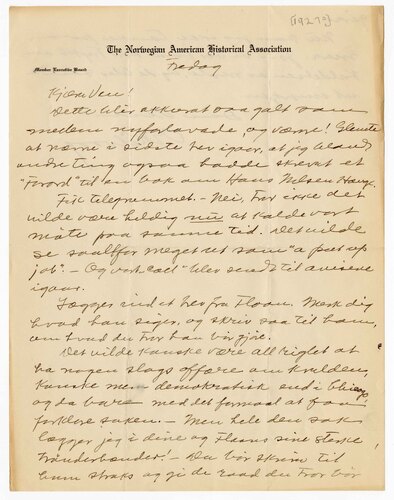 [1927?]
The Norwegian American Historical Association
Member Executive Board
Fredag
Kjære Ven!
Dette blir akkurat saa galt som
medens nyforlovede og værre! Glemte
at nævne i sidste brev igaar, at jeg blandt
andre ting ogsaa hadde skrevet et
"Forord" til en bok om Hans Nilsen Hauge.
Fik telegrammet. – Nei, tror ikke det
vilde være heldig nu at kalde vort
møte paa samme tid. Det vilde
se saa altfor meget ut som "a put up
job". – Og vort "call" blev sendt til avisene
igaar.
Lægger ind et brev fra Hoan. Merk dig
hvad han siger, og skriv saa til ham,
om hvad du tror han bør gjøre.
Det vilde kanske være all right at
ha nogen slags affære om kvelden,
kanske mere demokratisk end i Chicago
og da bare med det formaal at faa
forklare saken. – Men hele den sak
lægger jeg i dine og Hoans sine sterke
Trønderhænder! – Du bør skrive til
ham straks og gi de raad du tror bør